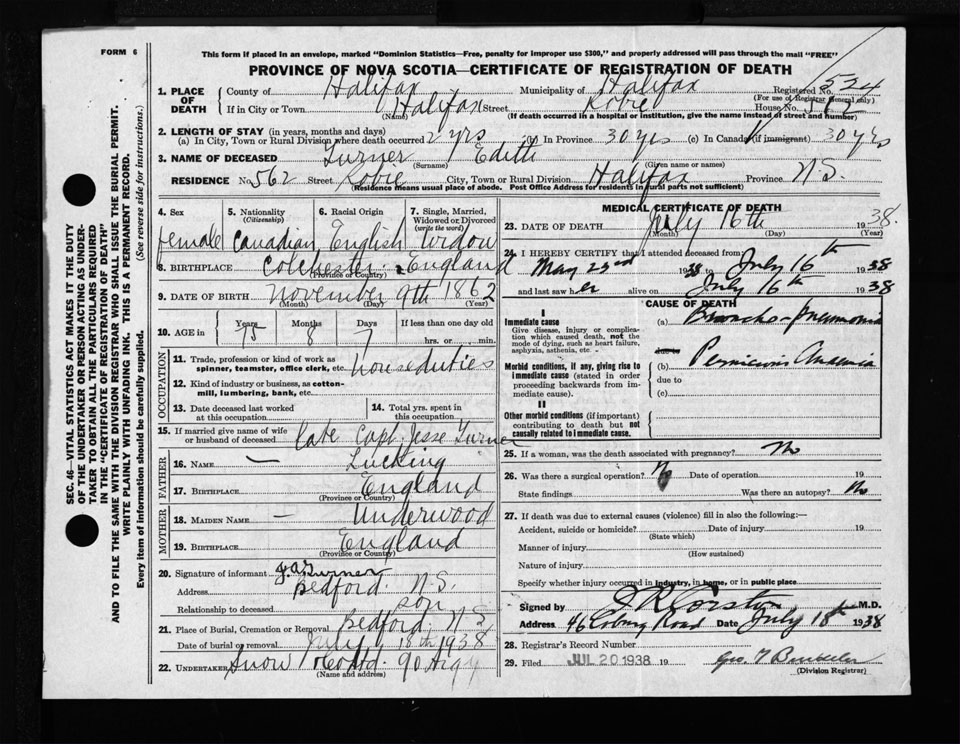 FORM 6
This form if placed in an envelope, marked "Dominion Statistics—Free, penalty for improper use $300," and properly addressed will pass through the mail "FREE"
PROVINCE OF NOVA SCOTIA—CERTIFICATE OF REGISTRATION OF DEATH
1. PLACE OF DEATH County of Halifax Municipality of Halifax Registered No. 524
(For use of Registrar General only)
If in City or Town Halifax Street Robie House No. 562
(Name) (If death occurred in a hospital or institution, give the name instead of street and number)
2. LENGTH OF STAY (in years, months and days)
(a) In City, Town or Rural Division where death occurred 2 yrs (b) In Province 30 yrs (c) In Canada (if immigrant) 30 yrs
3. NAME OF DECEASED Turner, Edith
(Surname) (Given name or names)
RESIDENCE No. 562 Street Robie City, Town or Rural Division Halifax Province N.S.
(Residence means usual place of abode. Post Office Address for residents in rural parts not sufficient)
4. Sex female
5. Nationality (Citizenship) Canadian
6. Racial Origin English
7. Single, Married, Widowed or Divorced (write the word) Widow
8. BIRTHPLACE Colchester England
(Province or Country)
9. DATE OF BIRTH November 9th 1862
(Month) (Day) (Year)
10. AGE in Years 75 Months 8 Days 7 If less than one day old hrs. or min.
OCCUPATION
11. Trade, profession or kind of work as spinner, teamster, office clerk, etc. houseduties
12. Kind of industry or business, as cotton-mill, lumbering, bank, etc.
13. Date deceased last worked at this occupation
14. Total yrs. spent in this occupation
15. If married give name of wife or husband of deceased late Capt. Jesse Turner
FATHER
16. NAME — Lucking
17. BIRTHPLACE England
(Province or Country)
MOTHER
18. MAIDEN NAME — Underwood
19. BIRTHPLACE England
(Province or Country)
20. Signature of informant Turner
Address Bedford N.S.
Relationship to deceased son
21. Place of Burial, Cremation or Removal Bedford N S
Date of burial or removal July 18th 1938
22. UNDERTAKER Snow & Co Ltd. 90 Argy
(Name and address)
MEDICAL CERTIFICATE OF DEATH
23. DATE OF DEATH July 16th 1938
(Month) (Day) (Year)
24. I HEREBY CERTIFY that I attended deceased from
May 23rd 1938 to July 16th 1938
and last saw her alive on July 16th 1938
CAUSE OF DEATH
I
Immediate cause
Give disease, injury or complication which caused death, not the mode of dying, such as heart failure, asphyxia, asthenia, etc.
(a) Broncho-Pneumonia
due to
Morbid conditions, if any, giving rise to immediate cause (stated in order proceeding backwards from immediate cause).
(b) Pernicious Anaemia
due to
(c)
II
Other morbid conditions (if important) contributing to death but not causally related to immediate cause.
25. If a woman, was the death associated with pregnancy? No
26. Was there a surgical operation? No Date of operation 19
State findings Was there an autopsy? No
27. If death was due to external causes (violence) fill in also the following:—
Accident, suicide or homicide? Date of injury 19
(State which)
Manner of injury
(How sustained)
Nature of injury
Specify whether injury occurred in industry, in home, or in public place
Signed by M.D.
Address 46 Coburg Road Date July 18th 1938
28. Registrar's Record Number
29. Filed JUL 20 1938 19 Geo.
(Division Registrar)
SEC. 46—VITAL STATISTICS ACT MAKES IT THE DUTY
OF THE UNDERTAKER OR PERSON ACTING AS UNDER-
TAKER TO OBTAIN ALL THE PARTICULARS REQUIRED
IN THE "CERTIFICATE OF REGISTRATION OF DEATH"
AND TO FILE THE SAME WITH THE DIVISION REGISTRAR WHO SHALL ISSUE THE BURIAL PERMIT.
WRITE PLAINLY WITH UNFADING INK. THIS IS A PERMANENT RECORD.
Every item of information should be carefully supplied. (See reverse side for instructions.)